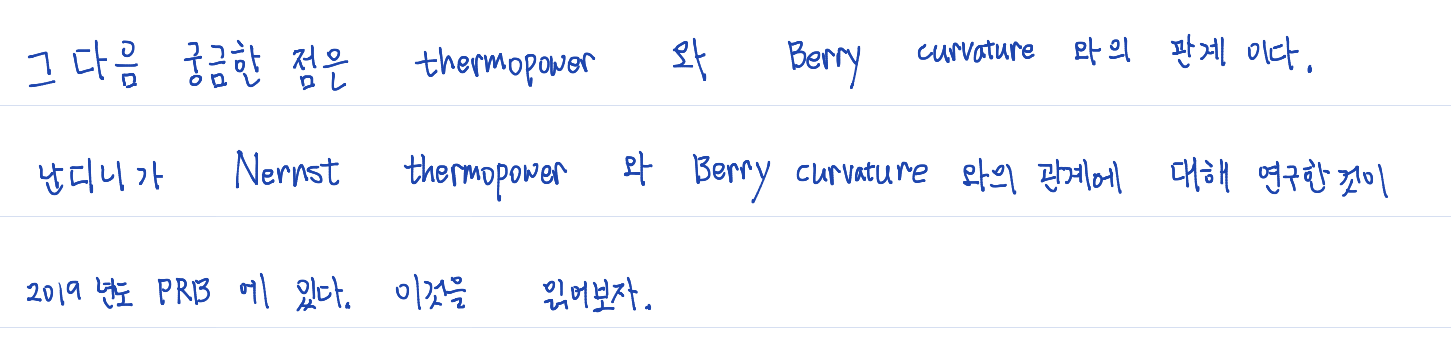 그 다음 궁금한 점은 thermopower 와 Berry curvature 와의 관계 이다.
난디니가 Nernst thermopower 와 Berry curvature 와의 관계에 대해 연구한것이
2019 년도 PRB 에 있다. 이것을 읽어보자.